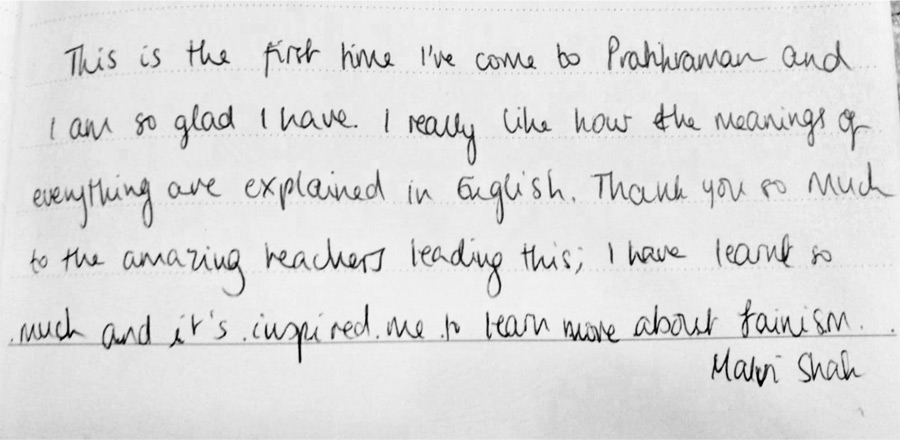 This is the first time I've come to Pratikraman and
I am so glad I have. I really like how the meanings of
everything are explained in English. Thank you so much
to the amazing teachers leading this; I have learnt so
much and it's inspired me to learn more about Jainism.
Shah